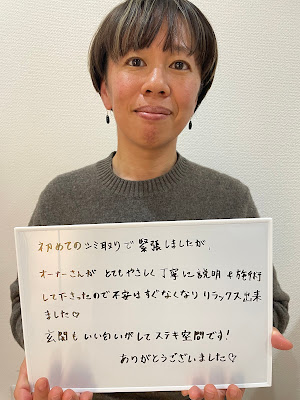 初めてのシミ取りで緊張しましたが
オーナーさんが とてもやさしく丁寧に説明も施術
して下さったので不安はすぐなくなりリラックス出来
ました♡
玄関もいい匂いがしてステキ空間です!
ありがとうございました♡